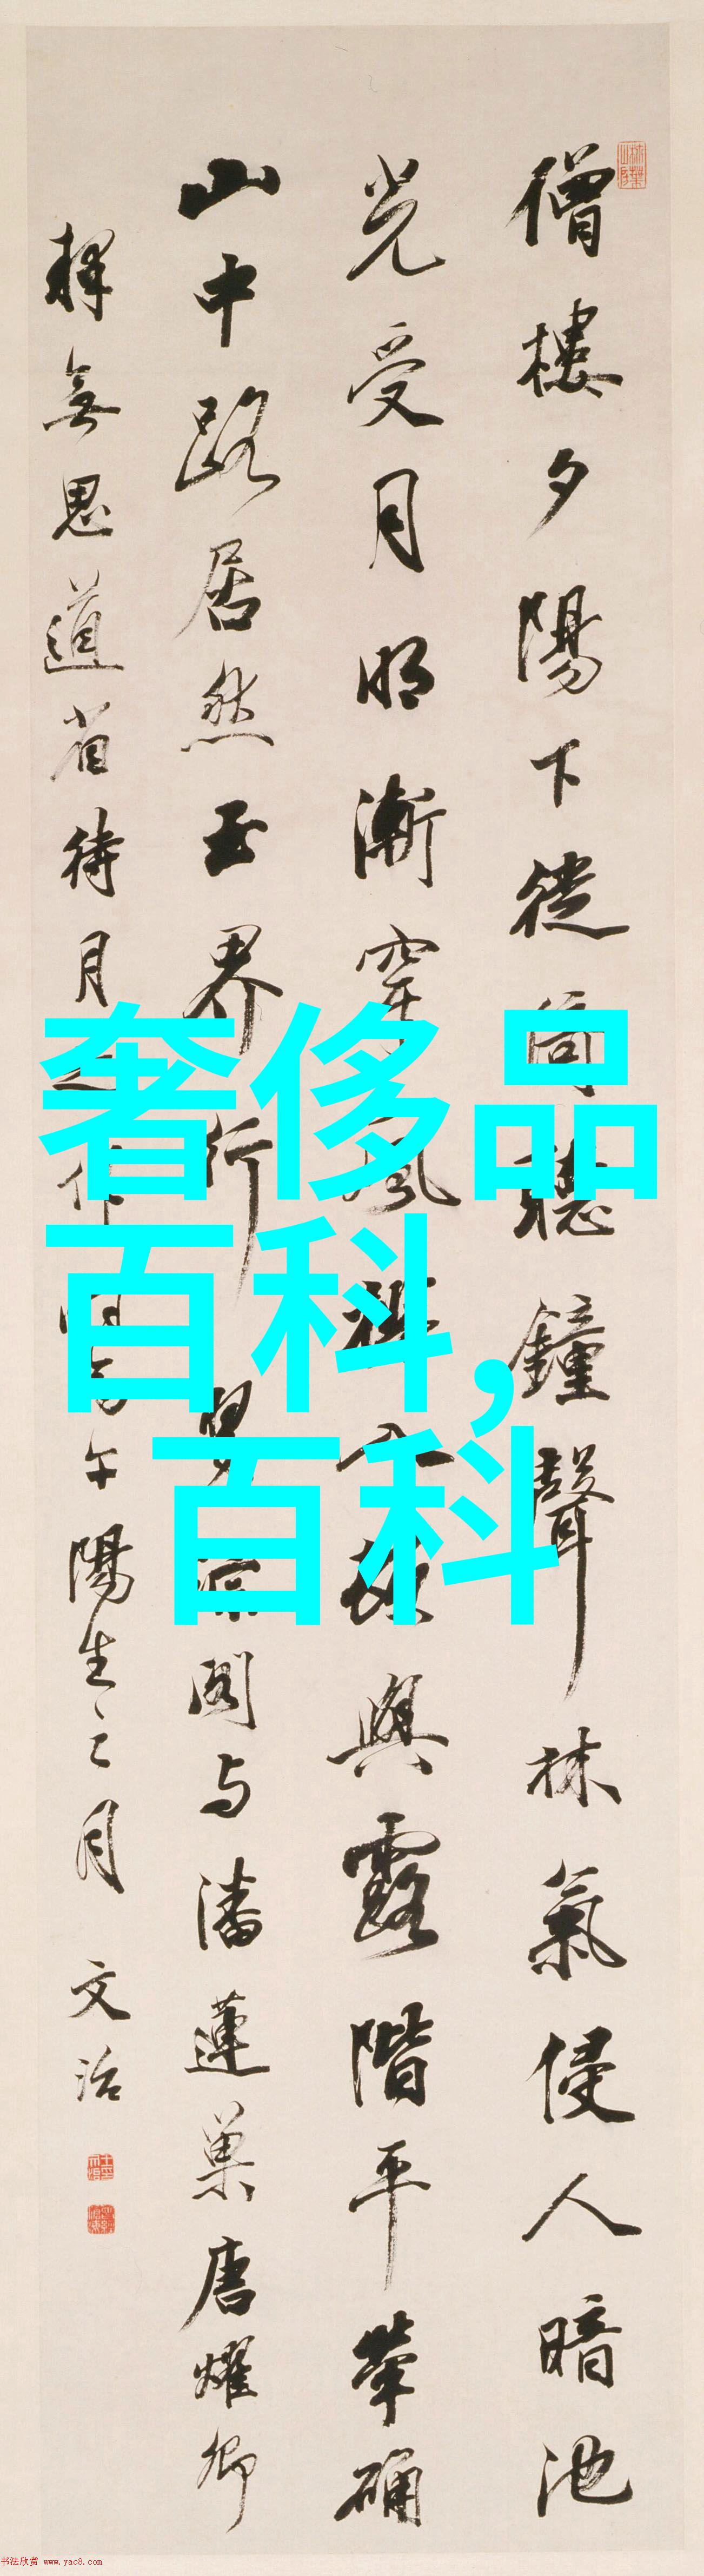 僧樓夕陽下徙倚聽鐘聲林氣侵人暗池
光受月明漸穿風入與露階平犖确
山中路居然玉界行閣与潘蓮巢唐耀卿
釋無思道省待月之作午陽生之月 文治
奢侈品
百科,
百科
书法欣赏 www.yac8.com